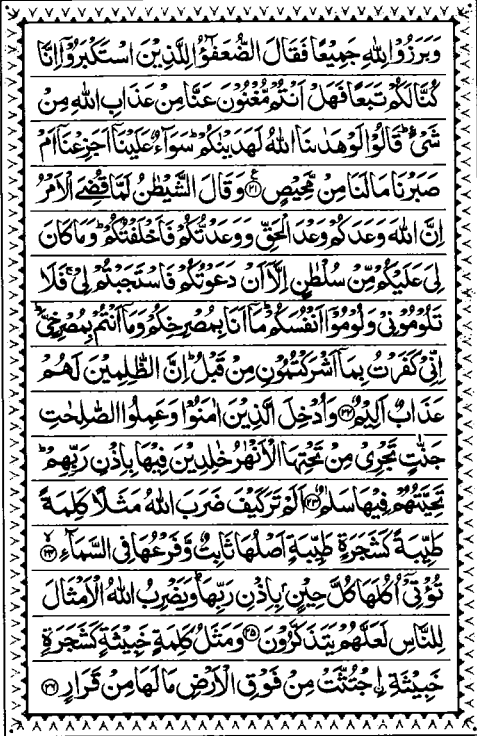 وَبَرَزُوۡا لِلّٰهِ جَمِيۡعًا فَقَالَ الضُّعَفٰٓؤُا لِلَّذِيۡنَ اسۡتَكۡبَرُوۡۤا اِنَّا
كُنَّا لَكُمۡ تَبَعًا فَهَلۡ اَنۡتُمۡ مُّغۡنُوۡنَ عَنَّا مِنۡ عَذَابِ اللّٰهِ مِنۡ
شَىۡءٍ‌ؕ قَالُوۡا لَوۡ هَدٰٮنَا اللّٰهُ لَهَدَيۡنٰكُمۡ‌ؕ سَوَآءٌ عَلَيۡنَاۤ اَجَزِعۡنَاۤ اَمۡ
صَبَرۡنَا مَا لَنَا مِنۡ مَّحِيۡصٍ ﴿۲۱﴾ وَقَالَ الشَّيۡطٰنُ لَمَّا قُضِىَ الۡاَمۡرُ
اِنَّ اللّٰهَ وَعَدَكُمۡ وَعۡدَ الۡحَـقِّ وَوَعَدْتُّكُمۡ فَاَخۡلَفۡتُكُمۡ‌ؕ وَمَا كَانَ
لِىَ عَلَيۡكُمۡ مِّنۡ سُلۡطٰنٍ اِلَّاۤ اَنۡ دَعَوۡتُكُمۡ فَاسۡتَجَبۡتُمۡ لِىۡ‌ۚ فَلَا
تَلُوۡمُوۡنِىۡ وَلُوۡمُوۡۤا اَنۡفُسَكُمۡ‌ؕ مَاۤ اَنَا بِمُصۡرِخِكُمۡ وَمَاۤ اَنۡتُمۡ بِمُصۡرِخِىَّ‌ؕ
اِنِّىۡ كَفَرۡتُ بِمَاۤ اَشۡرَكۡتُمُوۡنِ مِنۡ قَبۡلُ‌ؕ اِنَّ الظّٰلِمِيۡنَ لَهُمۡ
عَذَابٌ اَلِيۡمٌ‏ ﴿۲۲﴾ وَاُدۡخِلَ الَّذِيۡنَ اٰمَنُوۡا وَعَمِلُوا الصّٰلِحٰتِ
جَنّٰتٍ تَجۡرِىۡ مِنۡ تَحۡتِهَا الۡاَنۡهٰرُ خٰلِدِيۡنَ فِيۡهَا بِاِذۡنِ رَبِّهِمۡ‌ؕ
تَحِيَّتُهُمۡ فِيۡهَا سَلٰمٌ‏ ﴿۲۳﴾ اَلَمۡ تَرَ كَيۡفَ ضَرَبَ اللّٰهُ مَثَلًا كَلِمَةً
طَيِّبَةً كَشَجَرَةٍ طَيِّبَةٍ اَصۡلُهَا ثَابِتٌ وَّفَرۡعُهَا فِى السَّمَآءِۙ‏ ﴿۲۴﴾
تُؤۡتِىۡۤ اُكُلَهَا كُلَّ حِيۡنٍۢ بِاِذۡنِ رَبِّهَا‌ؕ وَيَضۡرِبُ اللّٰهُ الۡاَمۡثَالَ
لِلنَّاسِ لَعَلَّهُمۡ يَتَذَكَّرُوۡنَ‏ ﴿۲۵﴾ وَمَثَلُ كَلِمَةٍ خَبِيۡثَةٍ كَشَجَرَةٍ
خَبِيۡثَةِ ۟اجۡتُثَّتۡ مِنۡ فَوۡقِ الۡاَرۡضِ مَا لَهَا مِنۡ قَرَارٍ‏ ﴿۲۶﴾